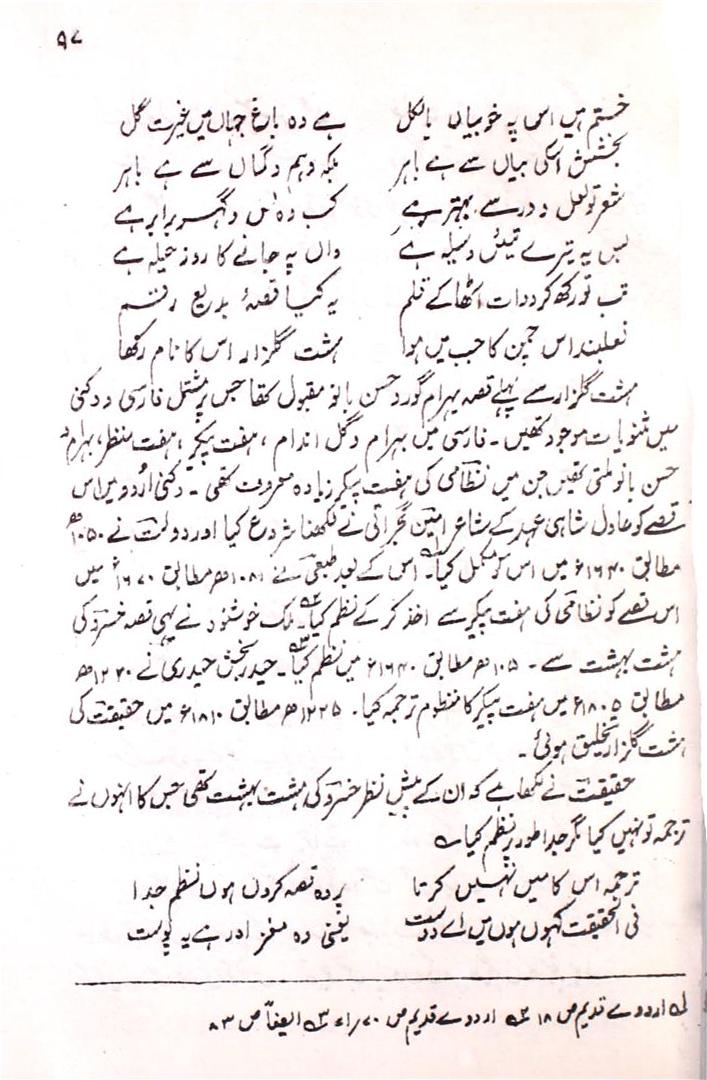 ۹۷
ختم ہیں اس پہ خوبیاں بالکل ہے وہ باغ جہاں میں غیرت گل
بخشش اسکی بیاں سے ہے باہر بلکہ وہم و گماں سے ہے باہر
شعر تو لعل و در سے بہتر ہے کب وہ اس و گہر برابر ہے
بس یہ تیرے تئیں وسیلہ ہے واں پہ جانے کا روز حیلہ ہے
تب تو رکھ کر دوات اٹھا کے قلم یہ کیا قصۂ بدیع رقم
نعلبند اس چمن کا جب میں ہوا ہشت گلزار اس کا نام رکھا
ہشت گلزار سے پہلے قصہ بہرام گور و حسن بانو مقبول تھا جس پر مشتمل فارسی و دکنی
میں مثنویات موجود تھیں۔ فارسی میں بہرام و گل اندام، ہفت پیکر، ہفت منظر، بہرام و
حسن بانو ملتی تھیں جن میں نظامی کی ہفت پیکر زیادہ معروف تھی۔ دکنی اُردو میں اس
قصے کو عادل شاہی عہد کے شاعر امین گجراتی نے لکھنا شروع کیا اور دولت نے ۱۰۵۰ھ
مطابق ۱۶۴۰ء میں اس کو مکمل کیا۔ اس کے بعد طبعی نے ۱۰۸۱ھ مطابق ۱۶۷۰ء میں
اس قصے کو نظامی کی ہفت پیکر سے اخذ کر کے نظم کیا۔ ملک خوشنود نے یہی قصہ خسرو کی
ہشت بہشت سے ۱۰۵۰ھ مطابق ۱۶۴۰ء میں نظم کیا۔ حیدر بخش حیدری نے ۱۲۲۰ھ
مطابق ۱۸۰۵ء میں ہفت پیکر کا منظوم ترجمہ کیا۔ ۱۲۲۵ھ مطابق ۱۸۱۰ء میں حقیقت کی
ہشت گلزار تخلیق ہوئی۔
حقیقت نے لکھا ہے کہ ان کے پیش نظر خسرو کی ہشت بہشت تھی جس کا انہوں نے
ترجمہ تو نہیں کیا مگر جدا طور پر نظم کیا ؎
ترجمہ اس کا میں نہیں کرتا پر وہ قصہ کروں ہوں نظم جدا
فی الحقیقت کہوں ہوں میں اے دوست یعنی وہ مغز اور ہے یہ پوست
۱؎ اردوے قدیم ص ۱۸ ۲؎ اردوے قدیم ص ۷۰/۱ء ۳؎ ایضاً ص ۸۳